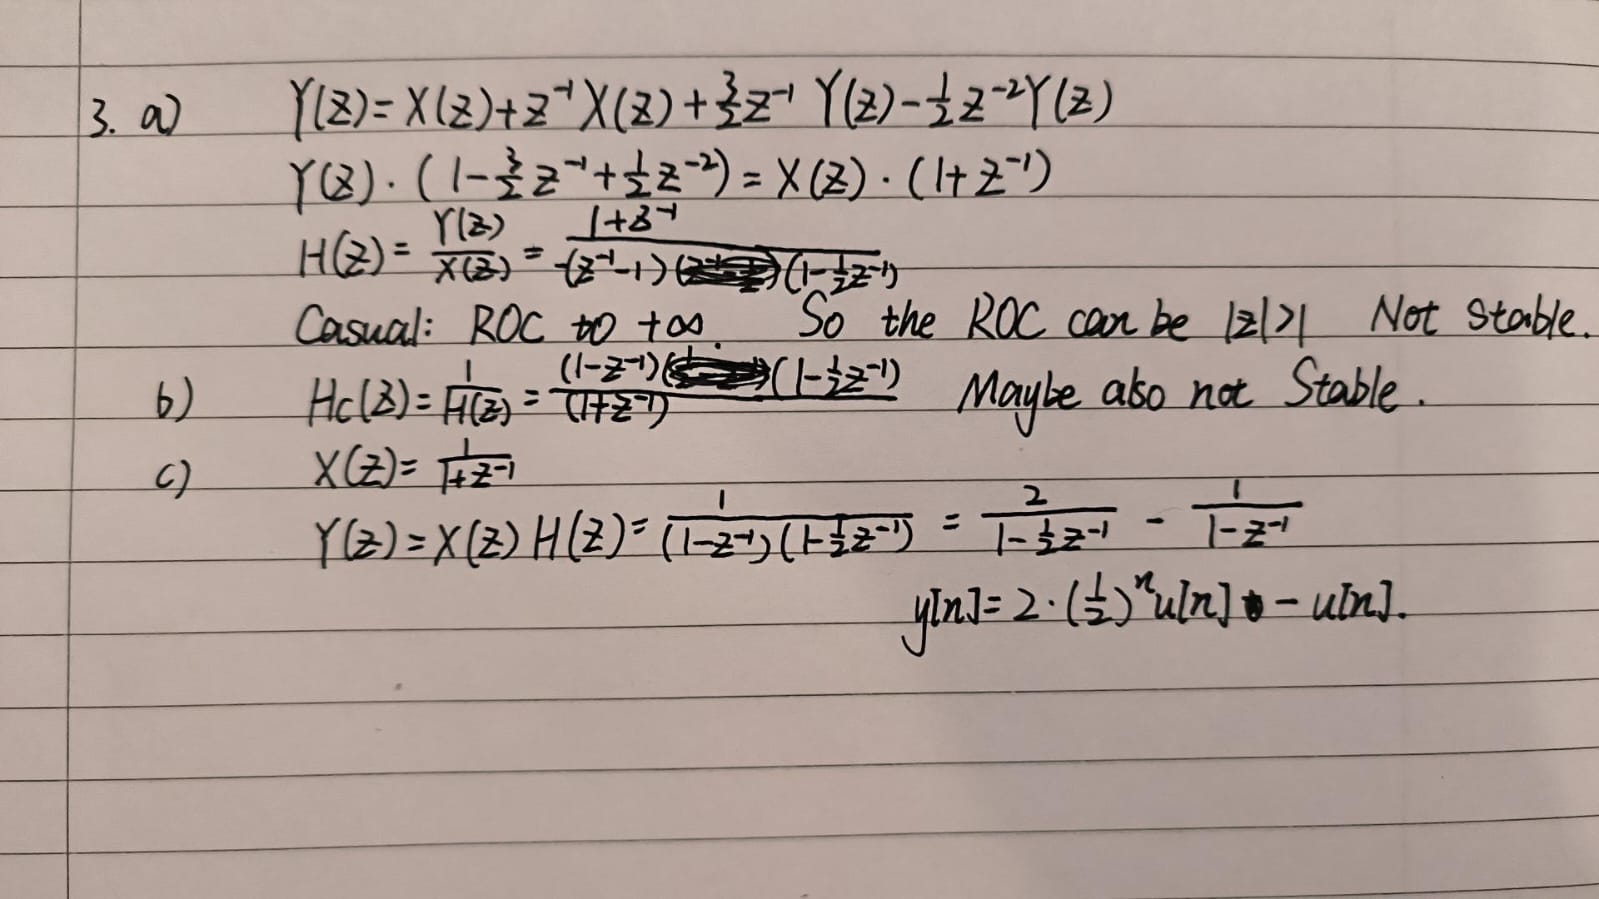 3. a) Y(z)=X(z)+z⁻¹X(z)+3/2z⁻¹Y(z)-1/2z⁻²Y(z)
Y(z)·(1-3/2z⁻¹+1/2z⁻²)=X(z)·(1+z⁻¹)
H(z)=Y(z)/X(z)=(1+z⁻¹)/(-(z⁻¹-1)(1-1/2z⁻¹))
Casual: ROC to +∞. So the ROC can be |z|>1 Not Stable.
b) Hc(z)=1/H(z)=(1-z⁻¹)(1-1/2z⁻¹)/(1+z⁻¹) Maybe also not Stable.
c) X(z)=1/(1+z⁻¹)
Y(z)=X(z)H(z)=1/((1-z⁻¹)(1-1/2z⁻¹))=2/(1-1/2z⁻¹)-1/(1-z⁻¹)
y[n]=2·(1/2)ⁿu[n]-u[n].